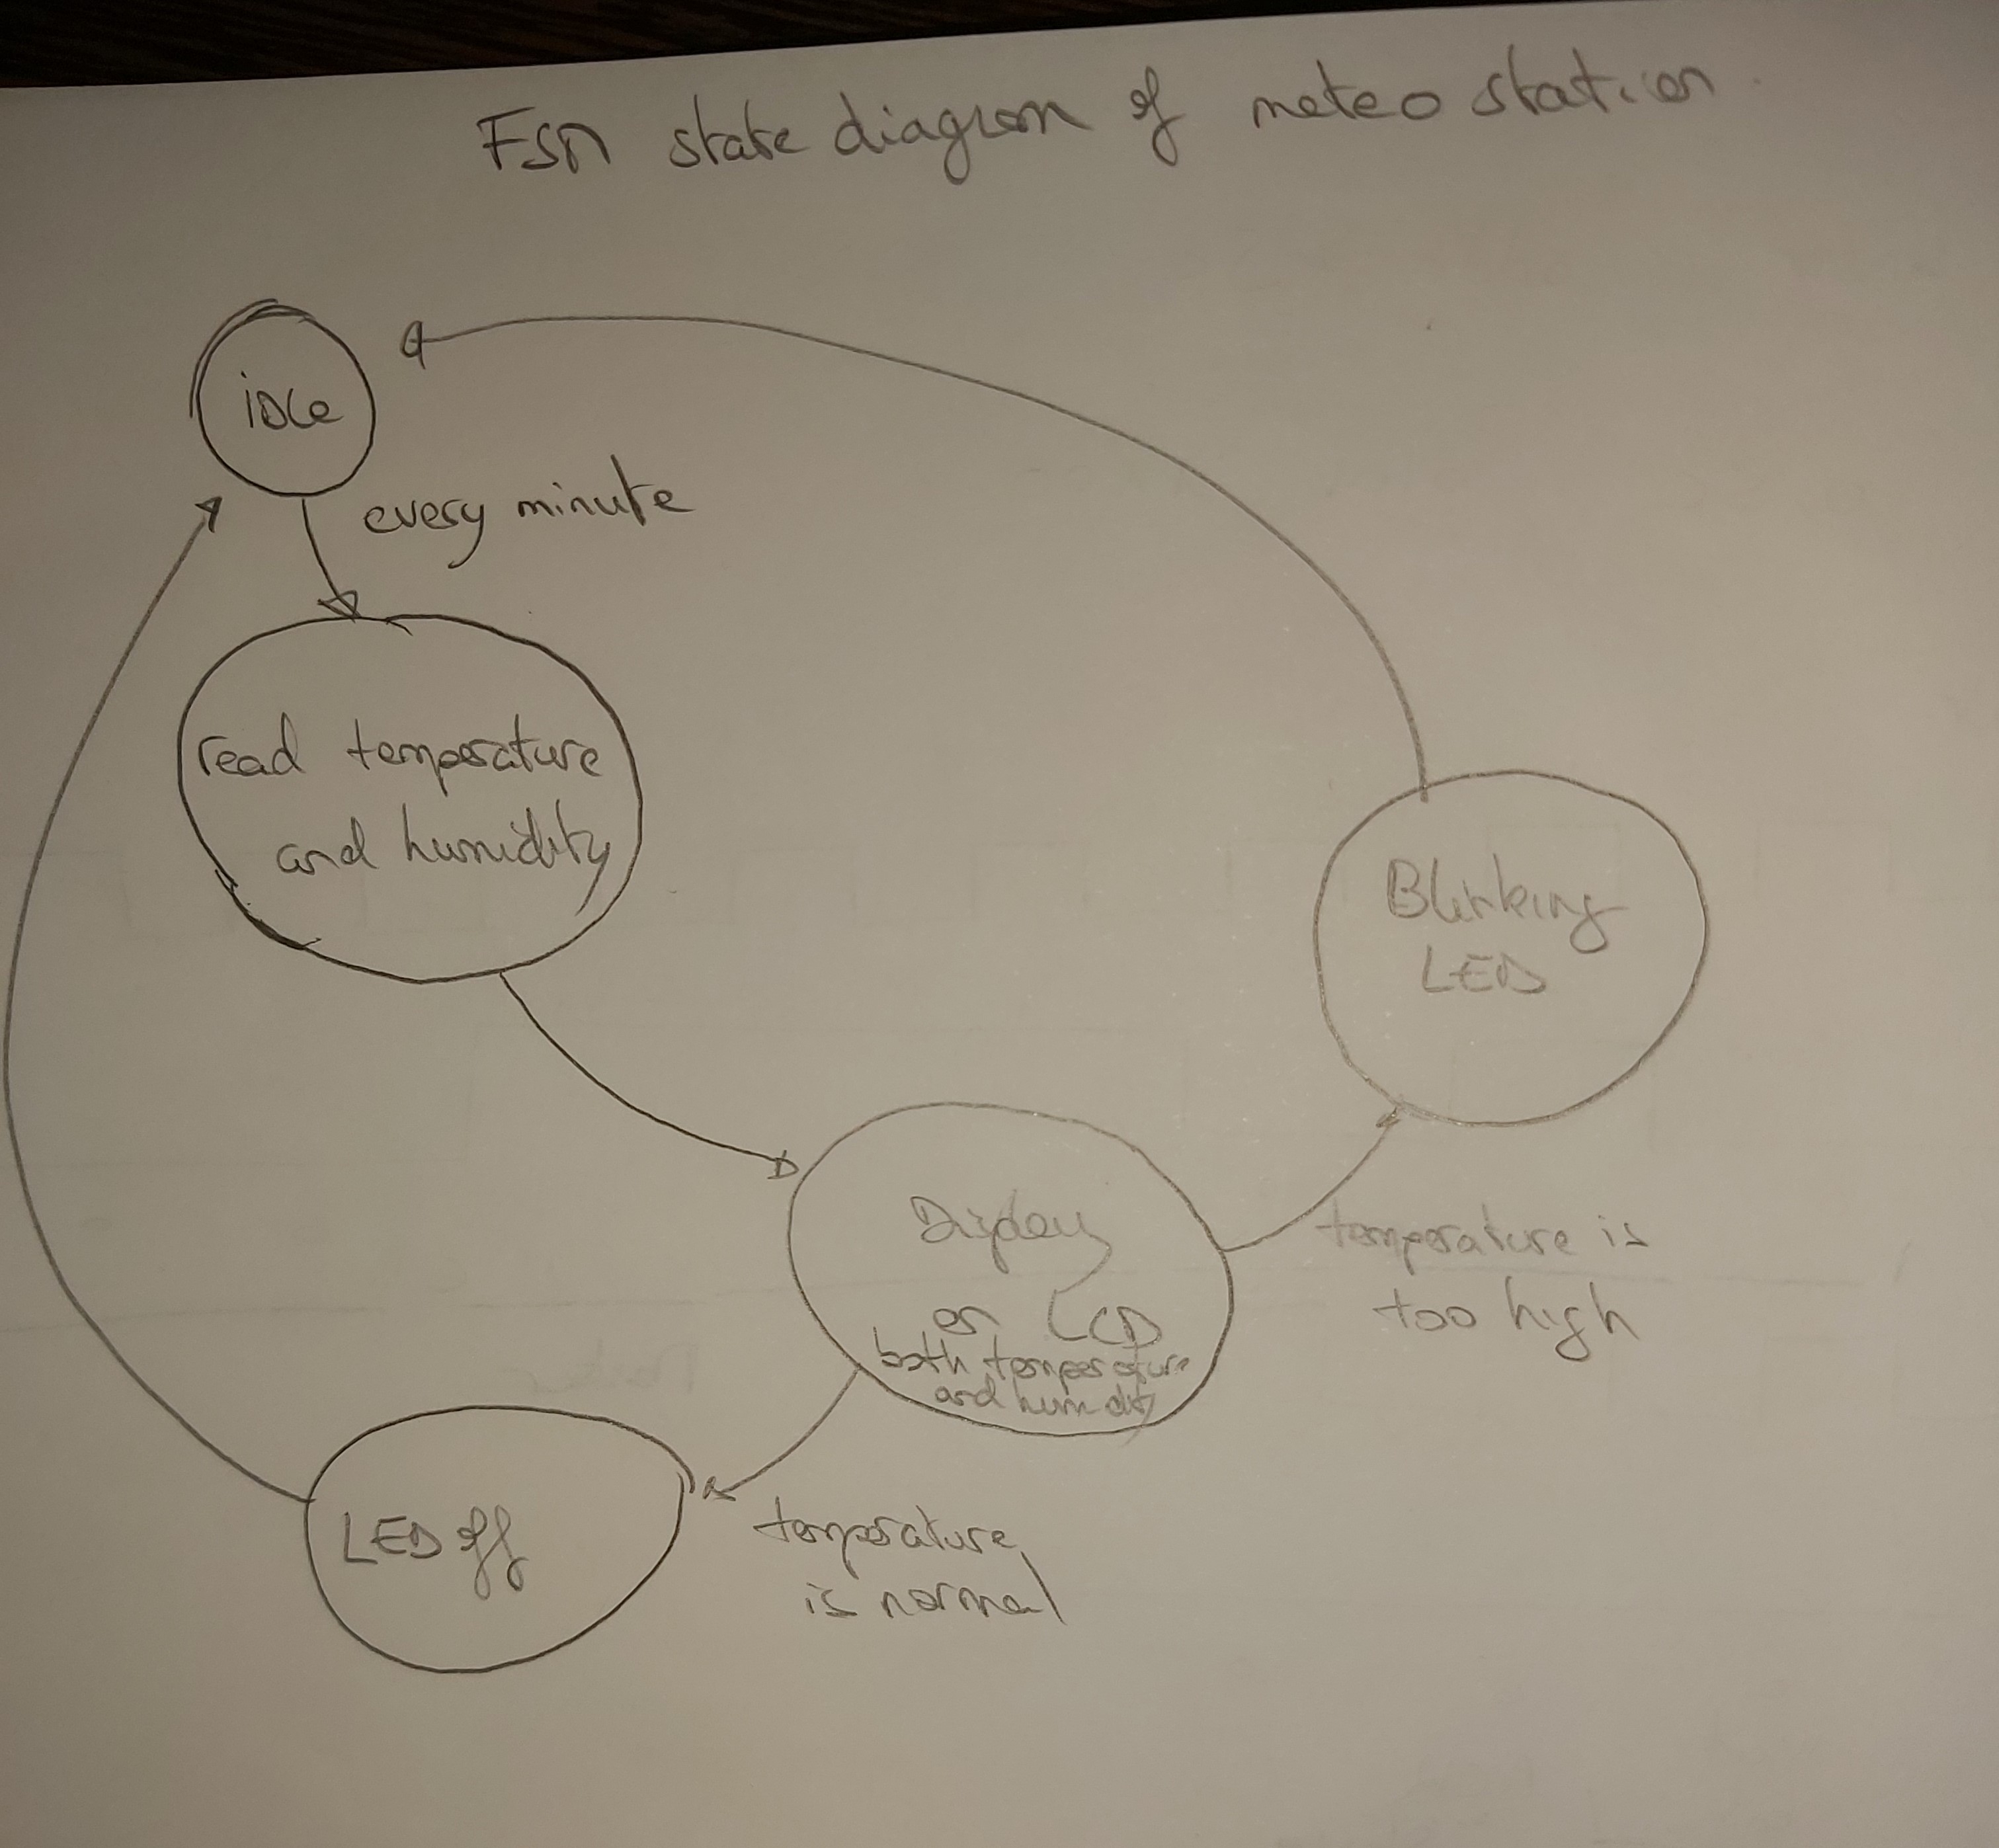 FSM state diagram of meteo station
idle
every minute
read temperature
and humidity
Blinking
LED
Display
on LCD
both temperature
and humidity
temperature is
too high
LED off
temperature
is normal